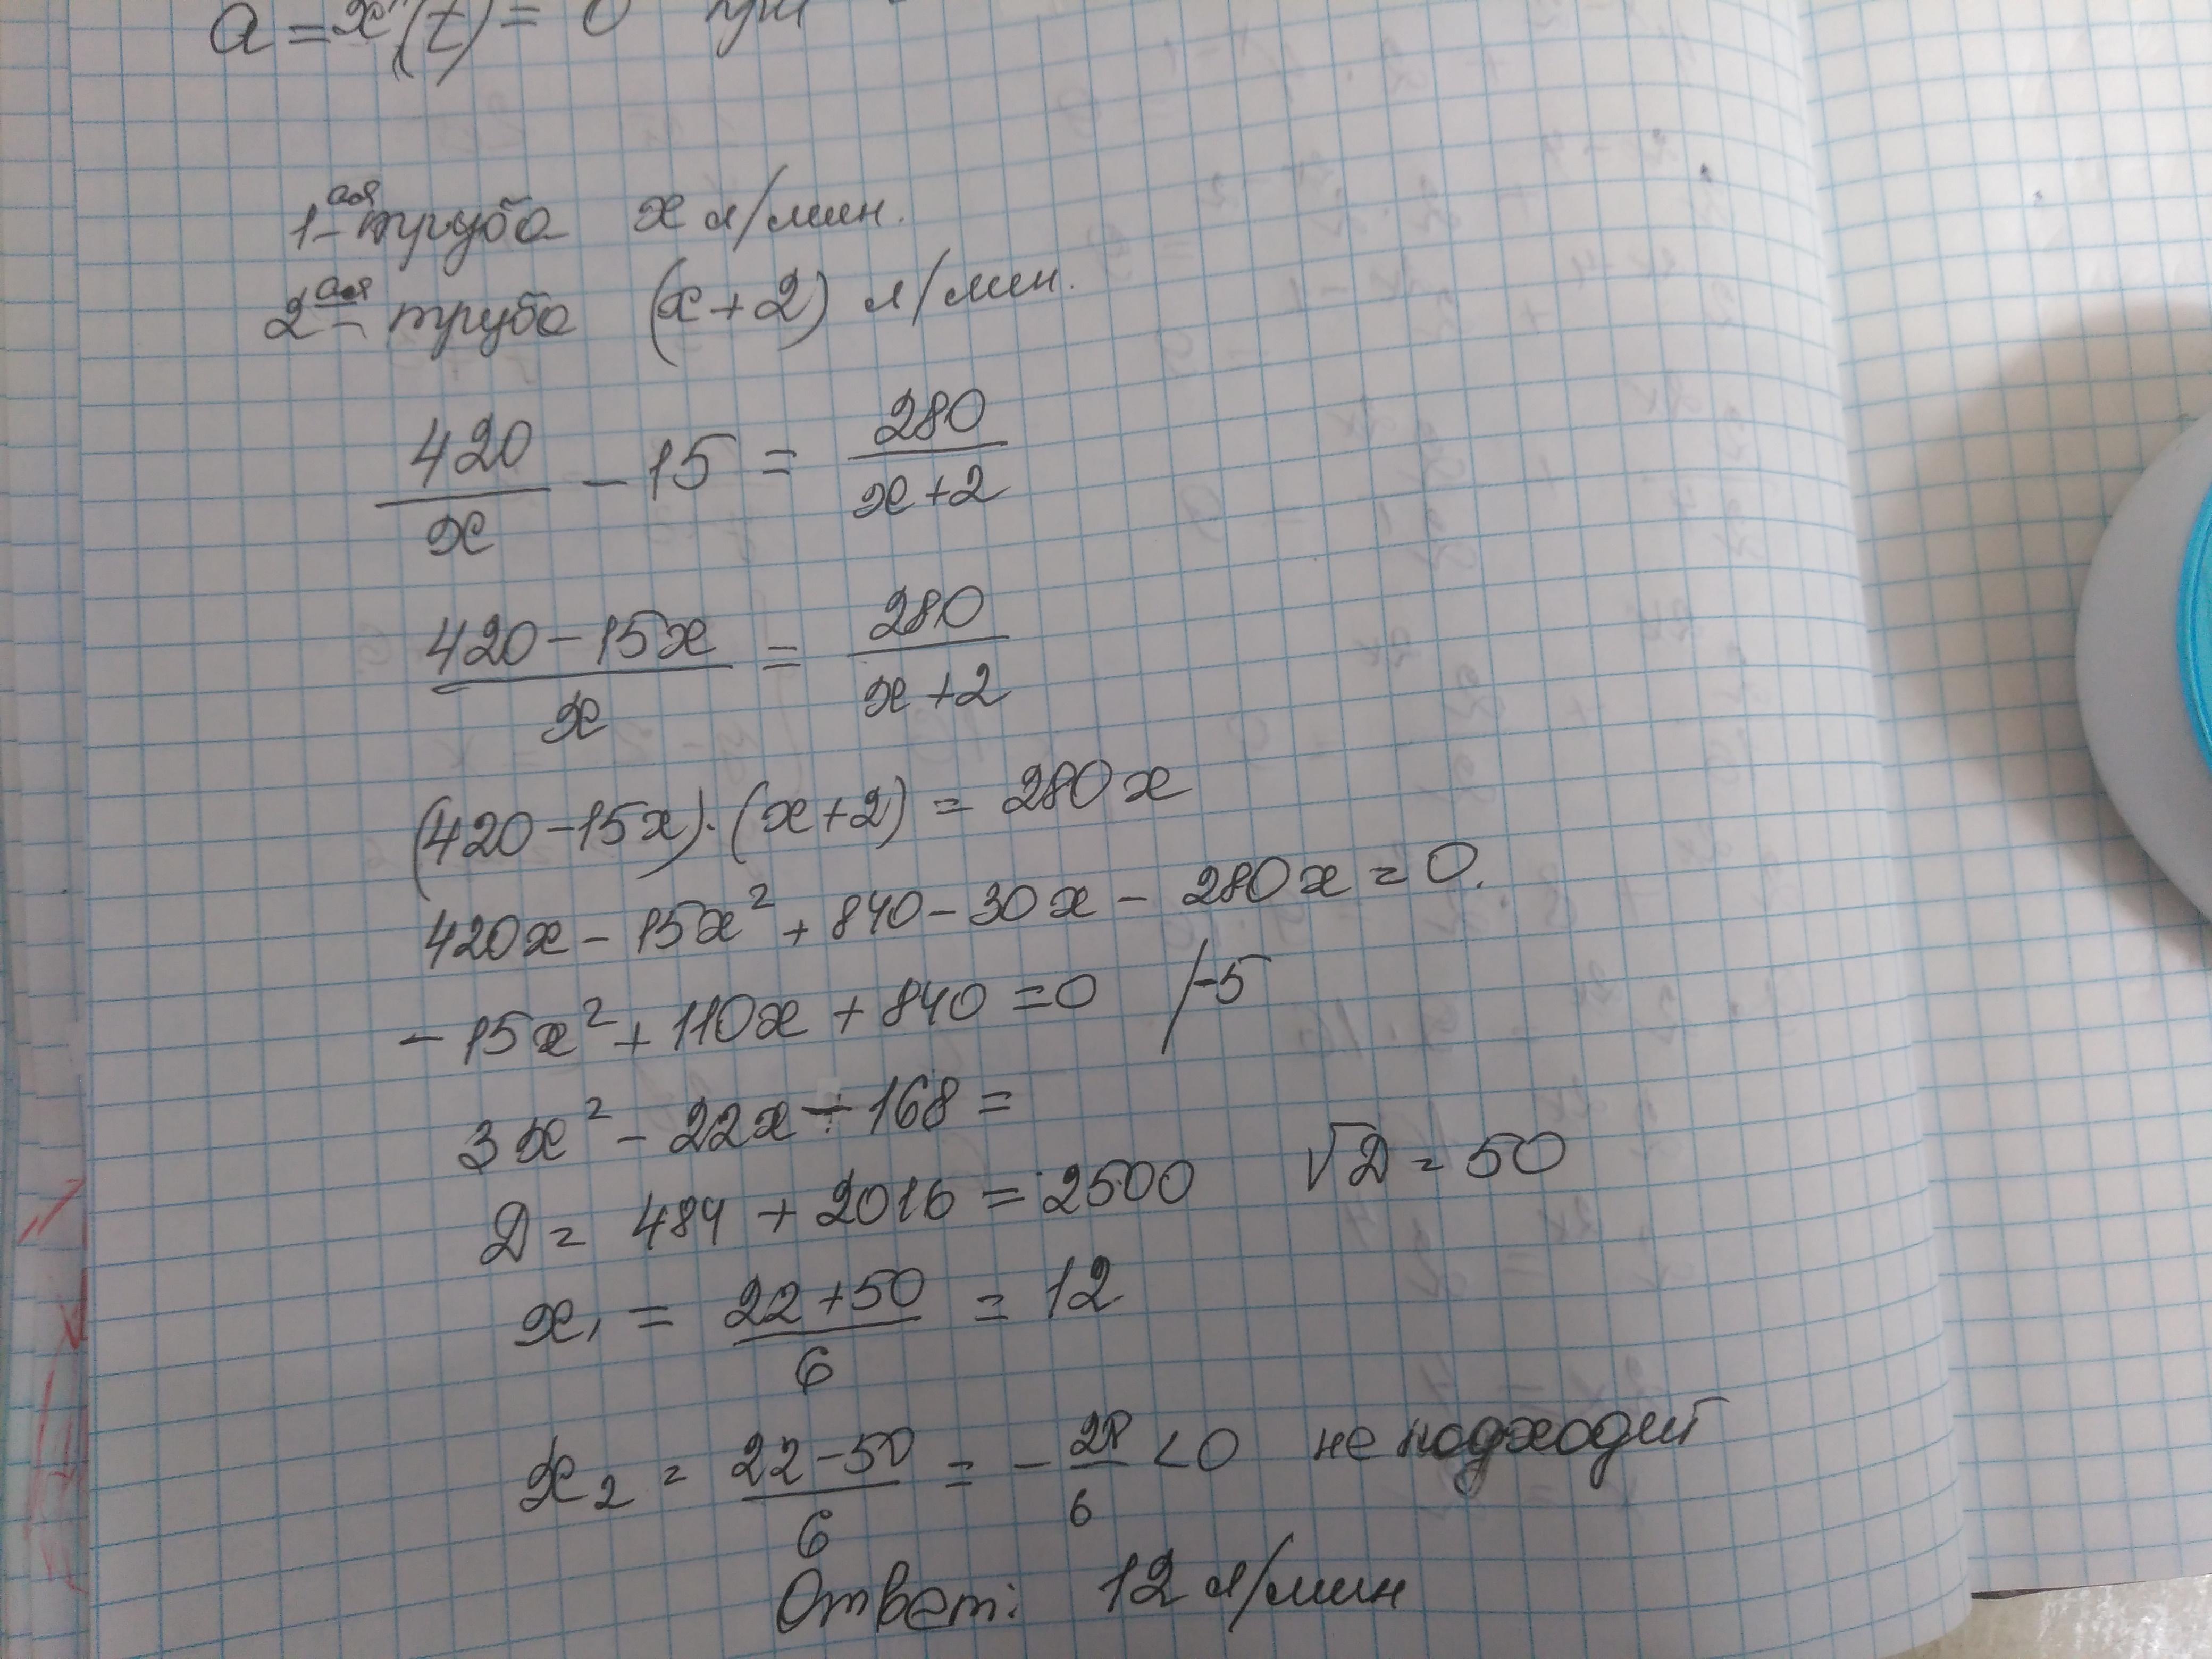 a = x''(t) = 0 при
1-ая труба x л/мин.
2-ая труба (x+2) л/мин.
420/x - 15 = 280/(x+2)
(420-15x)/x = 280/(x+2)
(420-15x)·(x+2) = 280x
420x - 15x² + 840 - 30x - 280x = 0.
-15x² + 110x + 840 = 0 /-5
3x² - 22x - 168 =
D = 484 + 2016 = 2500 √D = 50
x₁ = (22+50)/6 = 12
x₂ = (22-50)/6 = -28/6 < 0 не подходит
Ответ: 12 л/мин